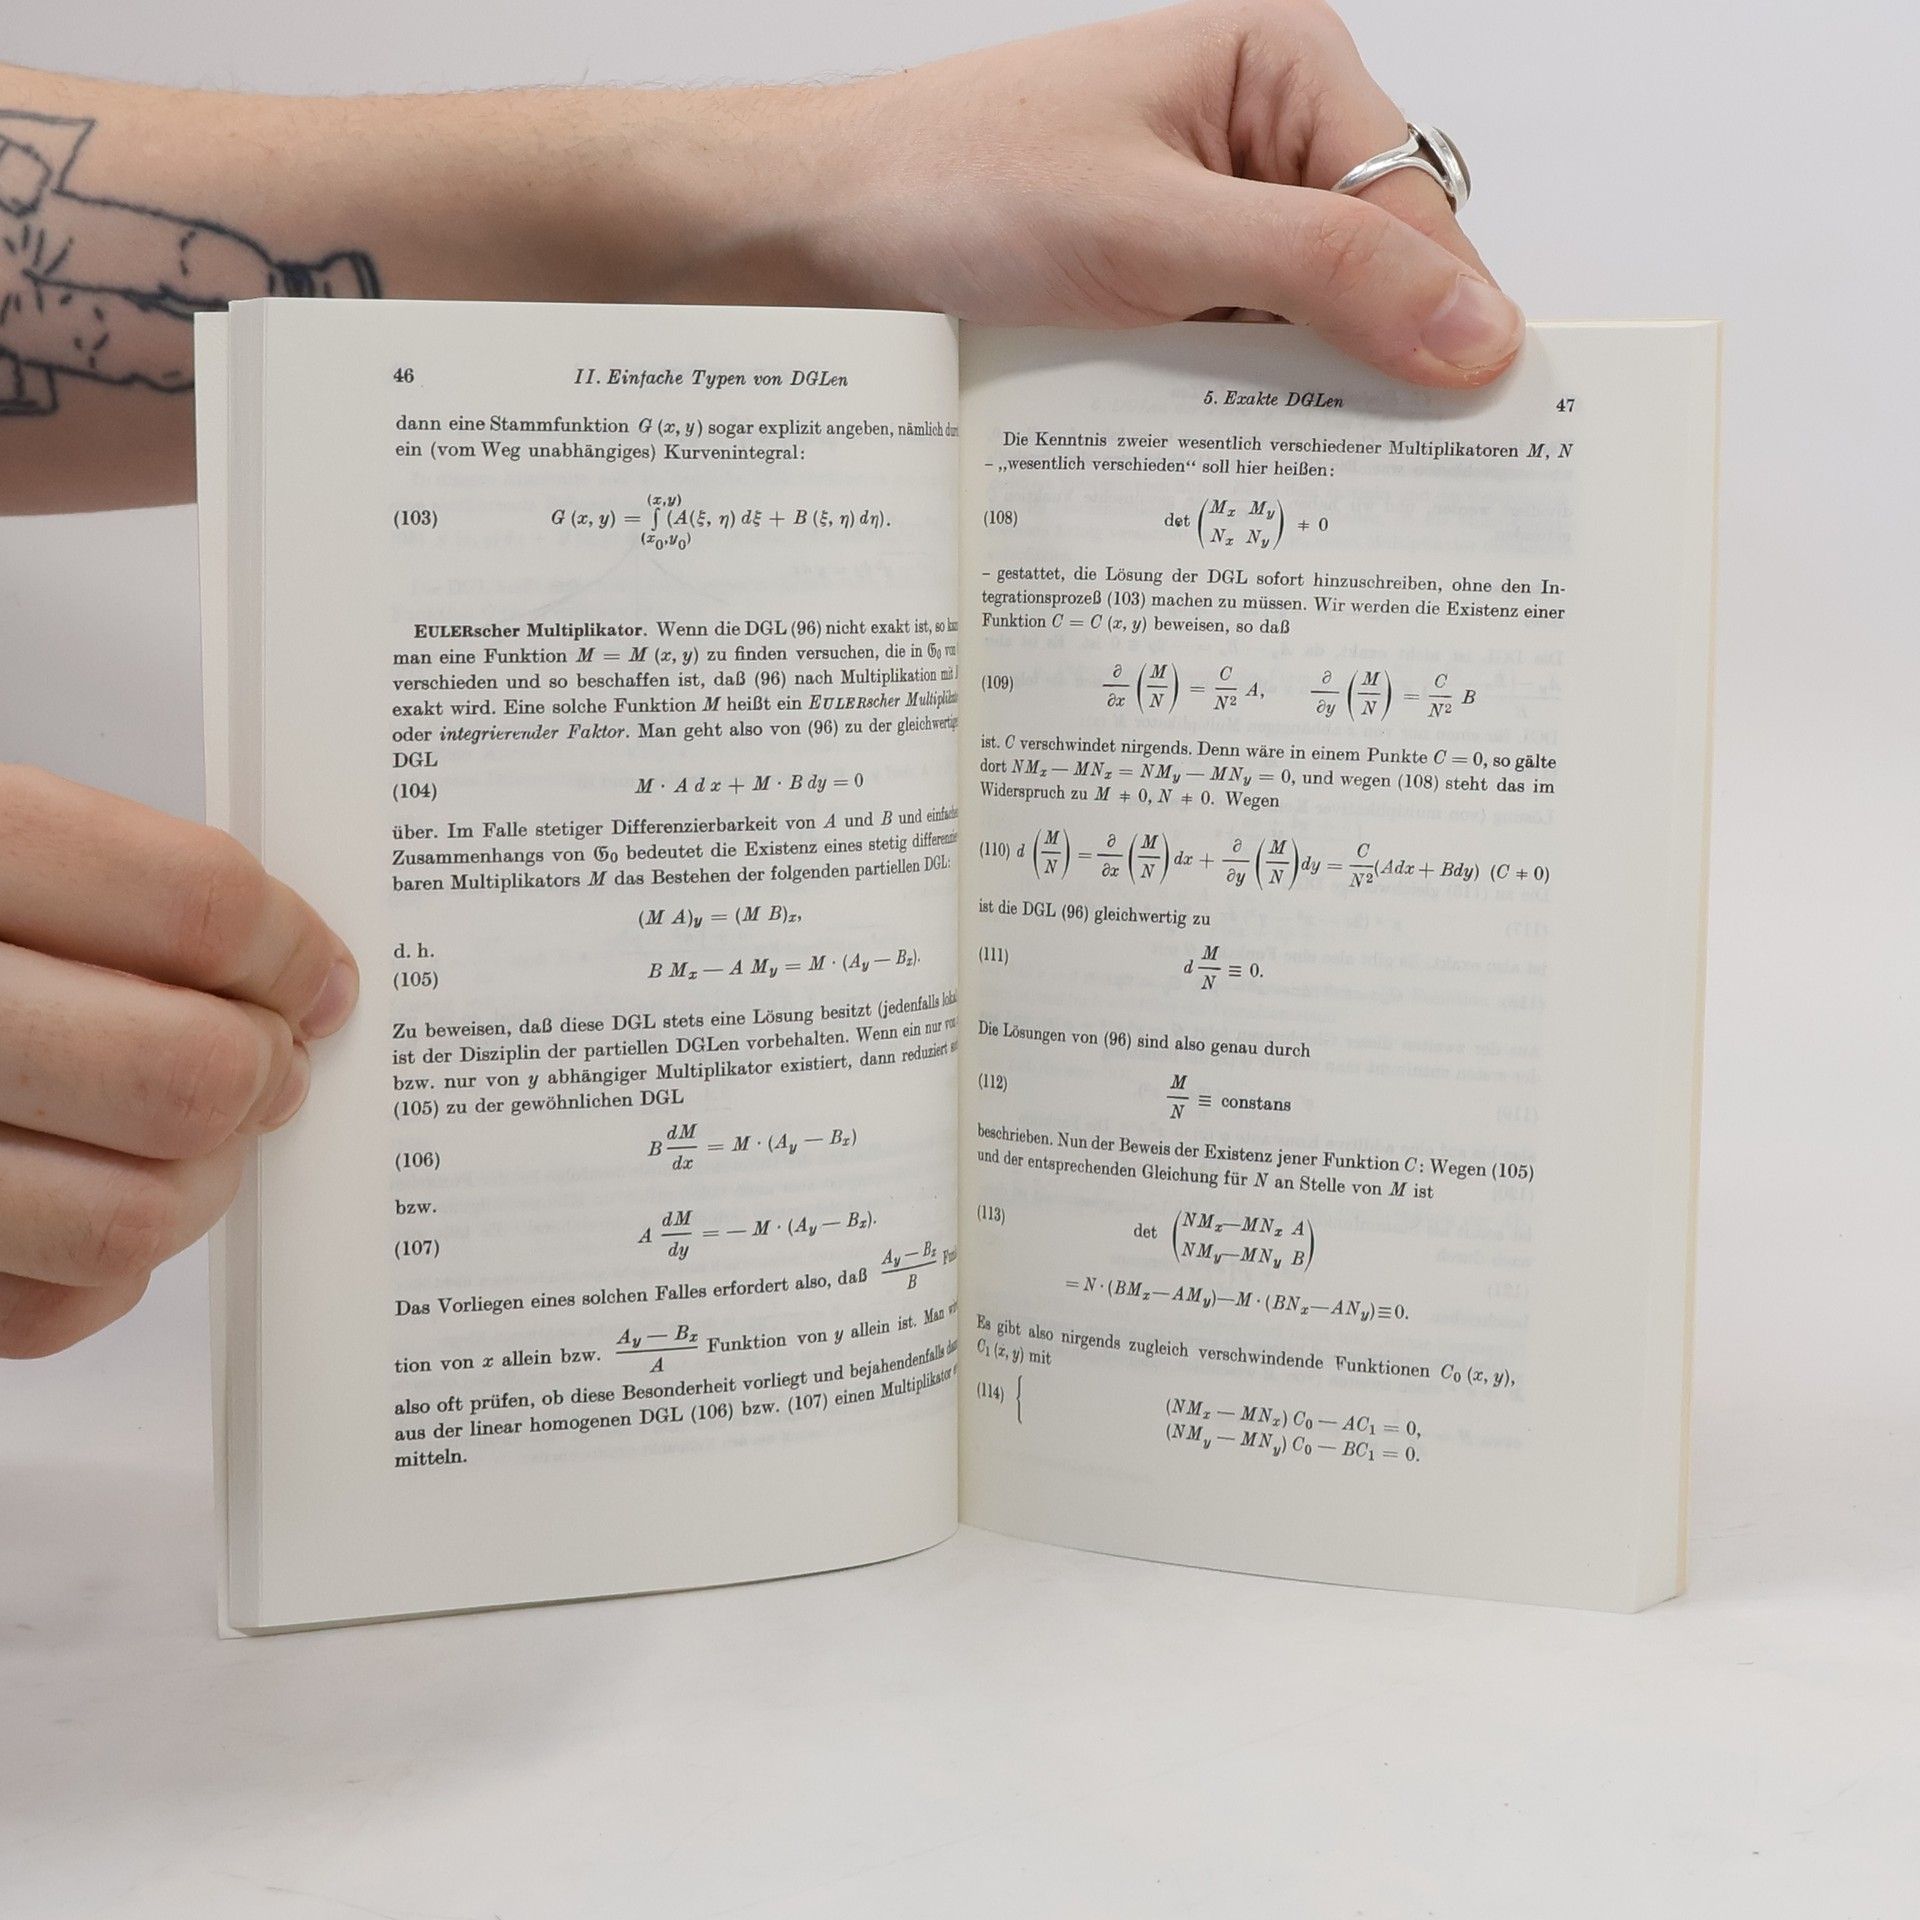 46 II. Einfache Typen von DGLen
dann eine Stammfunktion G (x, y) sogar explizit angeben, nämlich
ein (vom Weg unabhängiges) Kurvenintegral:
(103) G (x, y) = ∫_{(x₀,y₀)}^{(x,y)} (A(ξ, η) dξ + B (ξ, η) dη).
EULERscher Multiplikator. Wenn die DGL (96) nicht exakt ist, so
man eine Funktion M = M (x, y) zu finden versuchen, die in 𝔊₀
verschieden und so beschaffen ist, daß (96) nach Multiplikation mit
exakt wird. Eine solche Funktion M heißt ein EULERscher
oder integrierender Faktor. Man geht also von (96) zu der
DGL
(104) M · A d x + M · B dy = 0
über. Im Falle stetiger Differenzierbarkeit von A und B und
Zusammenhangs von 𝔊₀ bedeutet die Existenz eines stetig
baren Multiplikators M das Bestehen der folgenden partiellen DGL:
(M A)_y = (M B)_x,
d. h.
(105) B M_x — A M_y = M · (A_y — B_x).
Zu beweisen, daß diese DGL stets eine Lösung besitzt (jedenfalls
ist der Disziplin der partiellen DGLen vorbehalten. Wenn ein nur
bzw. nur von y abhängiger Multiplikator existiert, dann reduziert
(105) zu der gewöhnlichen DGL
(106) B dM/dx = M · (A_y — B_x)
bzw.
(107) A dM/dy = — M · (A_y — B_x).
Das Vorliegen eines solchen Falles erfordert also, daß (A_y — B_x)/B
tion von x allein bzw. (A_y — B_x)/A Funktion von y allein ist. Man
also oft prüfen, ob diese Besonderheit vorliegt und bejahendenfalls
aus der linear homogenen DGL (106) bzw. (107) einen Multiplikator
mitteln.
5. Exakte DGLen 47
Die Kenntnis zweier wesentlich verschiedener Multiplikatoren M, N
– „wesentlich verschieden“ soll hier heißen:
(108) det (M_x M_y; N_x N_y) ≠ 0
– gestattet, die Lösung der DGL sofort hinzuschreiben, ohne den In-
tegrationsprozeß (103) machen zu müssen. Wir werden die Existenz einer
Funktion C = C (x, y) beweisen, so daß
(109) ∂/∂x (M/N) = C/N² A, ∂/∂y (M/N) = C/N² B
ist. C verschwindet nirgends. Denn wäre in einem Punkte C = 0, so gälte
dort NM_x — MN_x = NM_y — MN_y = 0, und wegen (108) steht das im
Widerspruch zu M ≠ 0, N ≠ 0. Wegen
(110) d (M/N) = ∂/∂x (M/N) dx + ∂/∂y (M/N) dy = C/N² (Adx + Bdy) (C ≠ 0)
ist die DGL (96) gleichwertig zu
(111) d M/N ≡ 0.
Die Lösungen von (96) sind also genau durch
(112) M/N ≡ constans
beschrieben. Nun der Beweis der Existenz jener Funktion C: Wegen (105)
und der entsprechenden Gleichung für N an Stelle von M ist
(113) det (NM_x—MN_x A; NM_y—MN_y B)
= N · (BM_x—AM_y)—M · (BN_x—AN_y)≡0.
Es gibt also nirgends zugleich verschwindende Funktionen C₀ (x, y),
C₁ (x, y) mit
(114) { (NM_x — MN_x) C₀ — AC₁ = 0,
(NM_y — MN_y) C₀ — BC₁ = 0.